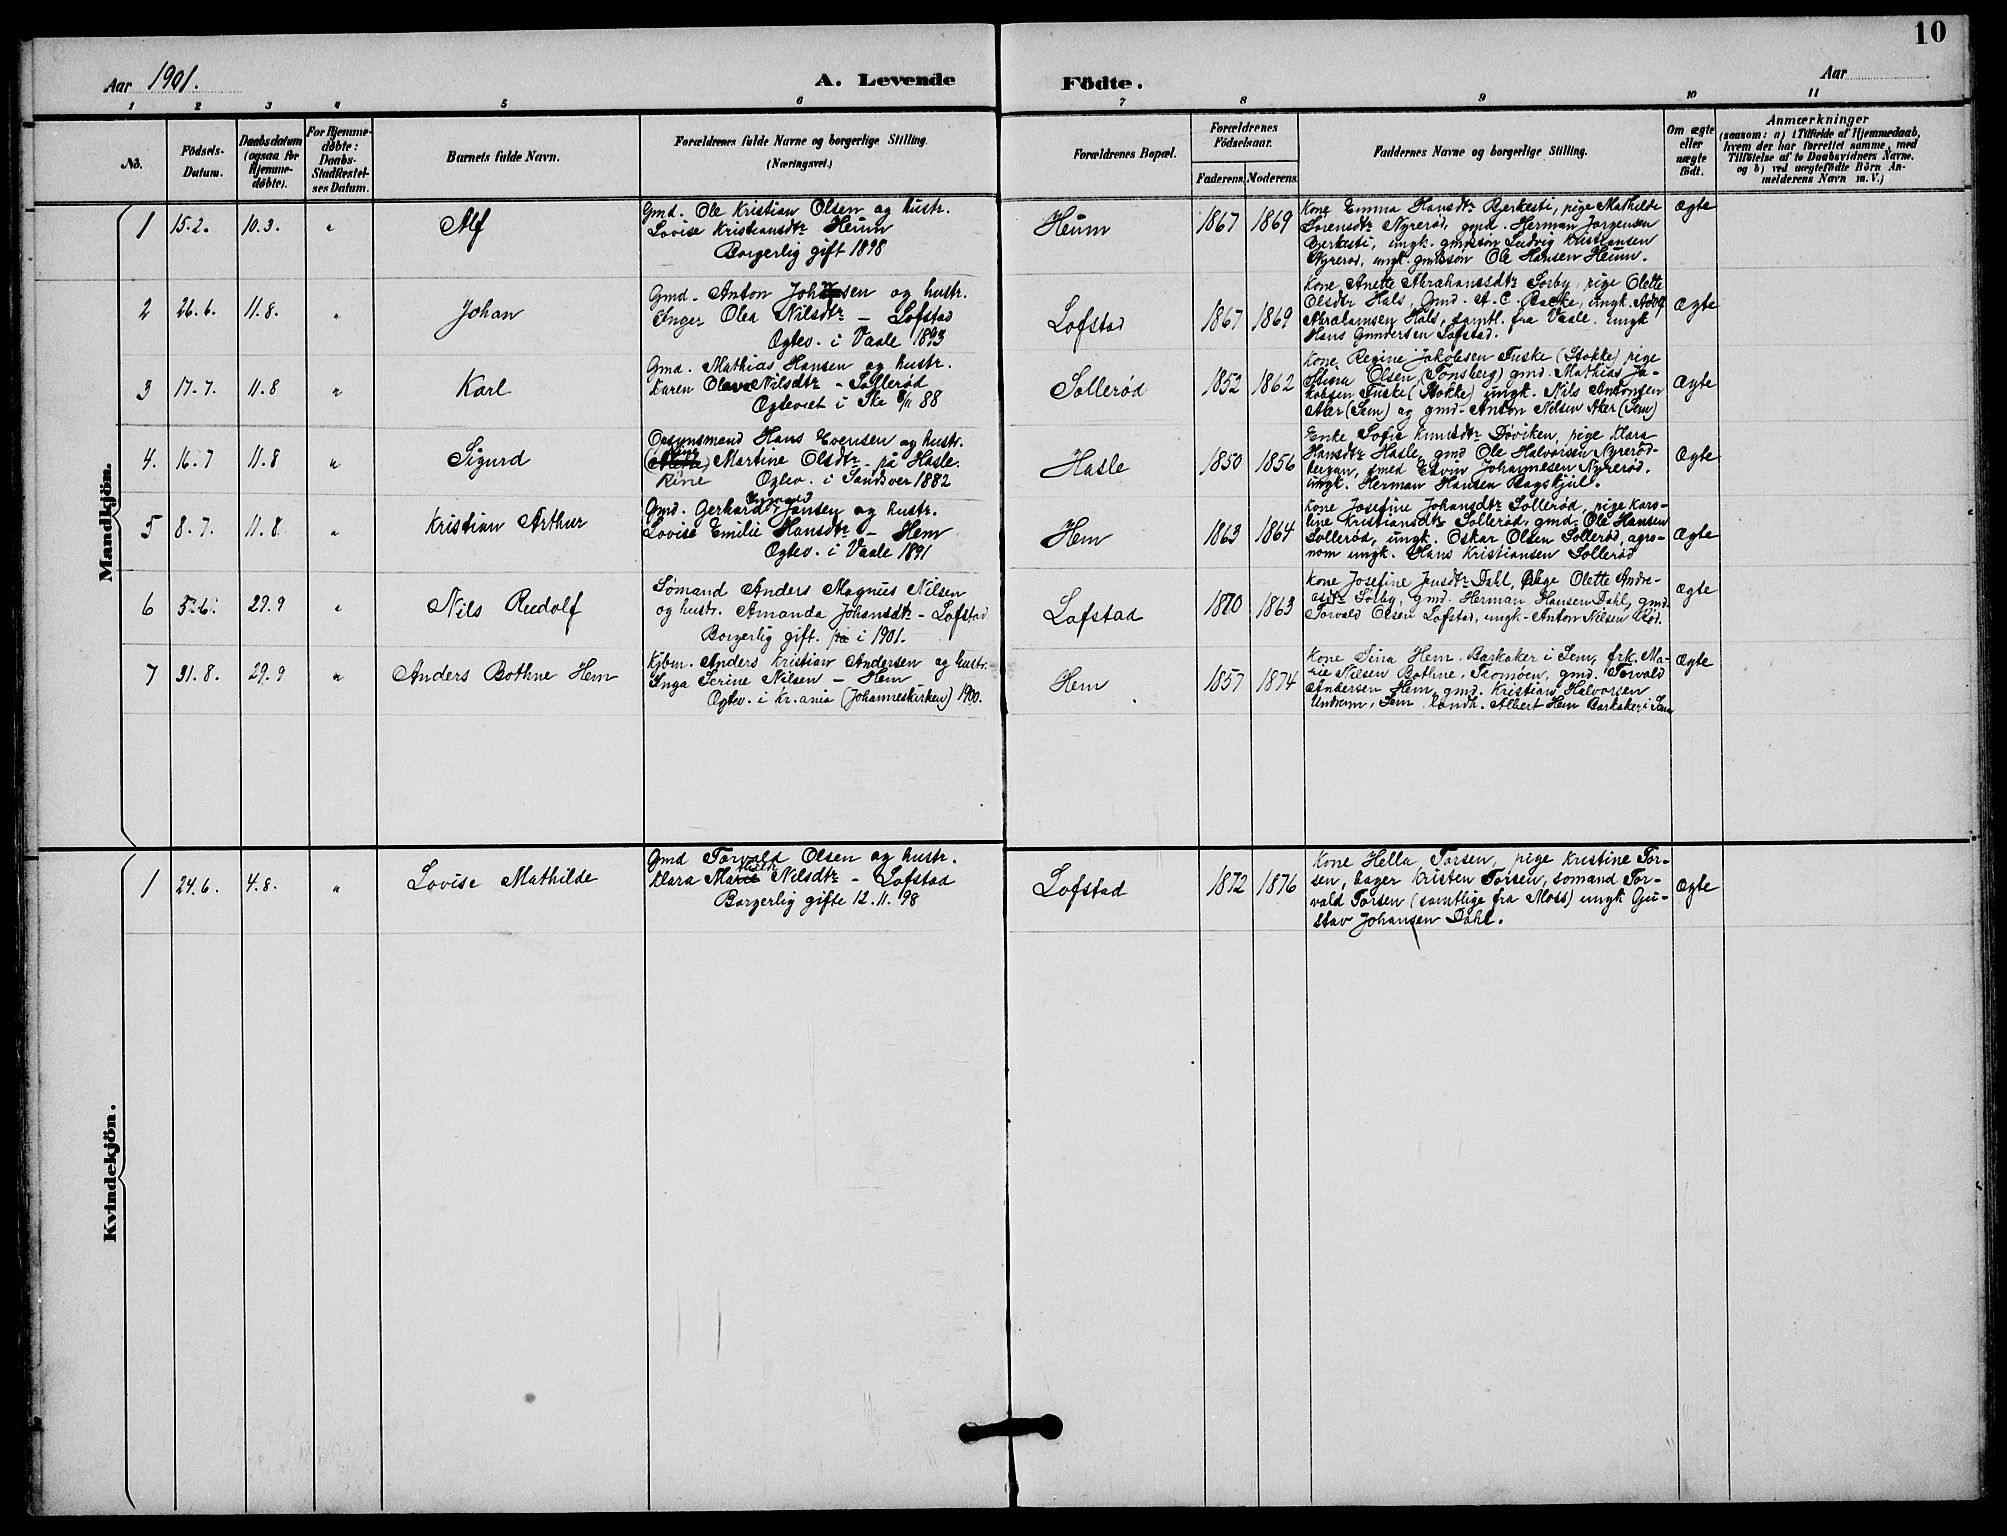 10
Aar 1901.
A. Levende
Födte.
Aar
1 2 3 4 5 6 7 8 9 10 11
No.
Födsels-
Datum.
Daabsdatum
(ogsaa for
Hjemme-
døbte).
For Hjemme-
døbte:
Daabs-
Stadfæstel-
ses Datum.
Barnets fulde Navn.
Forældrenes fulde Navne og borgerlige Stilling.
(Næringsvei.)
Forældrenes Bopæl.
Forældrenes
Födselsaar.
Faderens. Moderens.
Faddernes Navne og borgerlige Stilling.
Om ægte
eller
uægte
födt.
Anmærkninger
(saasom: a) i Tilfælde af Hjemmedaab,
hvem der har forrettet samme, med
Tilföielse af to Daabsvidners Navne,
og b) ved uægtefödte Börn An-
melderens Navn m. V.)
Mandkjön.
1 15.2. 10.3. " Alf
Gmd. Ole Kristian Olsen og hustr.
Lovise Kristiansdtr Heum
Borgerlig gift 1898
Heum 1867 1869
Kone Emma Hansdtr Bjerkesti, pige Mathilde
Sørensdtr Nyrerød, gmd. Herman Jørgensen
Bjerkesti, ungk. gmdssøn Ludvig Kristiansen
Nyrerød, ungk. gmdssøn Ole Hansen Heum.
Ægte
2 26.6. 11.8. " Johan
Gmd. Anton Johansen og hustr.
Inger Olea Nilsdtr - Lofstad
Ægtev. i Vaale 1893
Lofstad 1867 1869
Kone Anette Abrahamsdtr Sørby, pige Olette
Olsdtr Hals, Gmd. A. C. Bakke, ungk. Adolf
Abrahamsen Hals, samtl. fra Vaale, ungk
Hans Gundersen Lofstad.
Ægte
3 17.7. 11.8 " Karl
Gmd. Mathias Hansen og hustr.
Karen Olava Nilsdtr - Sollerød
Ægteviet i 88
Sollerød 1852 1862
Kone Regine Jakobsen Fuske (Stokke) pige
Olsen (Tønsberg) gmd. Mathias Ja-
kobsen Fuske (Stokke) ungk. Nils Antonsen
Aker (Sem) og gmd. Anton Nilsen Aker (Sem)
Ægte
4. 16.7 11.8 " Sigurd
Opsynsmand Hans Evensen og hustr.
Martine Olsdtr på Hasle.
Ægtev. i Sandsver 1882
Hasle 1850 1856
Enke Sofie Knudsdtr Døviken, pige Klara
Hansdtr Hasle, gmd Ole Halvorsen Nyrerød-
bergan, smed Edvin Johannesen Nyrerød.
ungk. Herman Hansen Bagskjul.
Ægte
5 8.7. 11.8 " Kristian Arthur
Gmd. Gerhard Jansen og hustr.
Lovise Emilie Hansdtr - Hem
Ægtev. i Vaale 1891
Hem 1863 1864
Kone Josefine Johansdtr Sollerød, pige Karo-
line Kristiansdtr Sollerød, gmd. Ole Hansen
Sollerød, ungk. Oskar Olsen Sollerød, agro-
nom ungk. Hans Kristiansen Sollerød
Ægte
6 5.6. 29.9 " Nils Rudolf
Sømand Anders Magnus Nilsen
og hustr. Amanda Johansdtr - Lofstad
Borgerlig gift. i 1901.
Lofstad 1870 1863
Kone Josefine Jensdtr Dahl, pige Olette Andre-
asdtr Sørby, gmd. Herman Hansen Dahl, gmd.
Torvald Olsen Lofstad, ungk. Anton Nilsen Rød.
Ægte
7 31.8. 29.9 " Anders Bothne Hem
Kjbm. Anders Kristian Andersen og hustr.
Inga Serine Nilsen - Hem
Ægtev. i Kr.ania (Johanneskirken) 1900.
Hem 1857 1874
Kone Sina Hem, Barkaker i Sem, frk. Ma-
rie Nilsen Bothne, Tromøen, gmd. Torvald
Andersen Hem, gmd. Kristian Halvorsen
Undrum, Sem landh. Albert Hem Barkaker i Sem
Ægte
Kvindekjön.
1 24.6. 4.8. " Lovise Mathilde
Gmd Torvald Olsen og hustr.
Klara Marie Nilsdtr - Lofstad
Borgerlig gifte 12.11.98
Lofstad 1872 1876
Kone Hella Torsen, pige Kristine Tor-
sen, bager Kristen Torsen, sømand Tor-
vald Torsen (samtlige fra Moss) ungk Gu-
stav Johansen Dahl.
Ægte